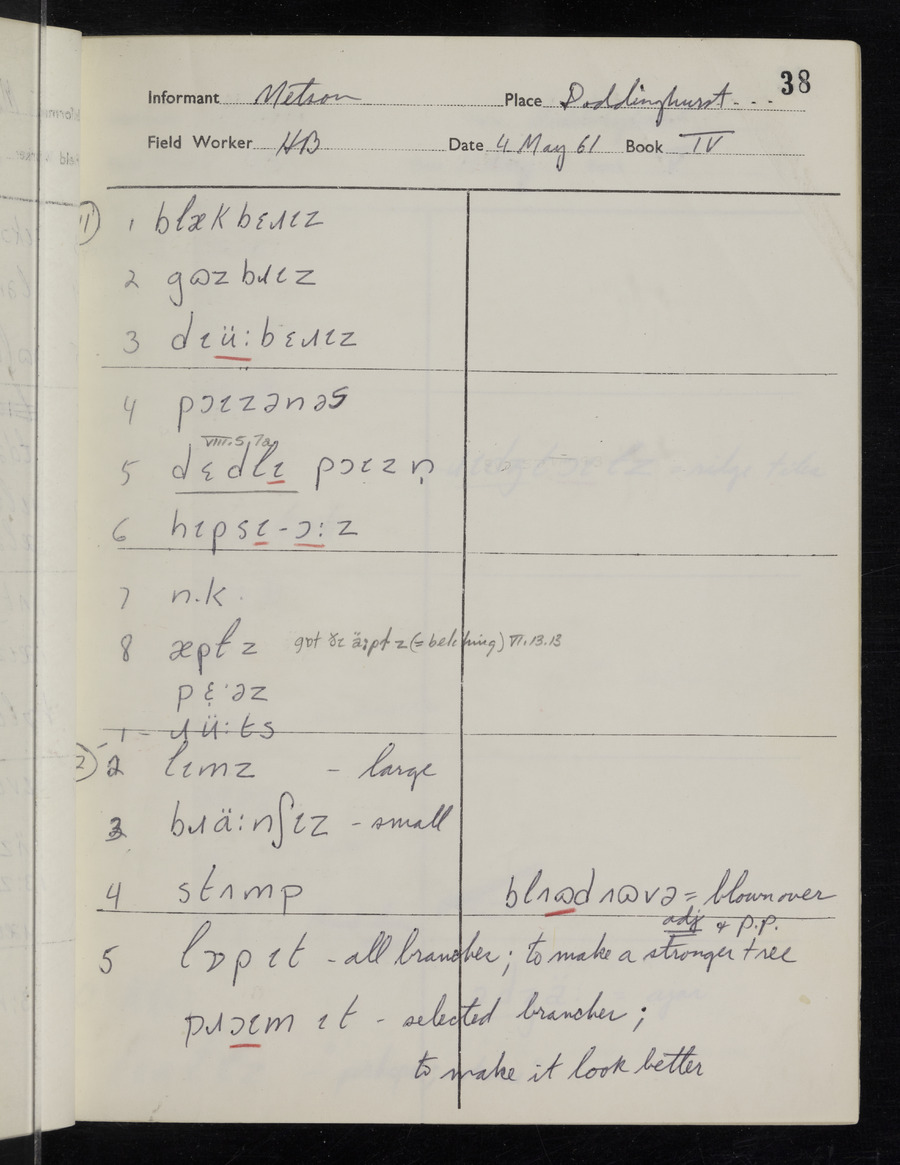 38
Informant Metson Place Doddinghurst
Field Worker HB Date 4 May 61 Book IV
11
1 blækbɛɹɪz
2 gɷzbɹɪz
3 dɪü:bɛɹɪz
4 pɔɪzənəs
VIII.5.7a
5 dɛdlɪ pɔɪzn̩
6 hɪpsɪ-ɔ:z
7 n.k.
8 æpɫz gɒt ðɪ äɪpɫz (= belching) VI.13.13
pɛ·əz
1 - ɹü:ts
2 lɪmz - large
3 bɹä:nʃɪz - small
4 stʌmp blʌɷd ʌɷvə = blown over
adj & p.p.
5 lɒp ɪt - all branches; to make a stronger tree
pɹɔɪm ɪt - selected branches;
to make it look better